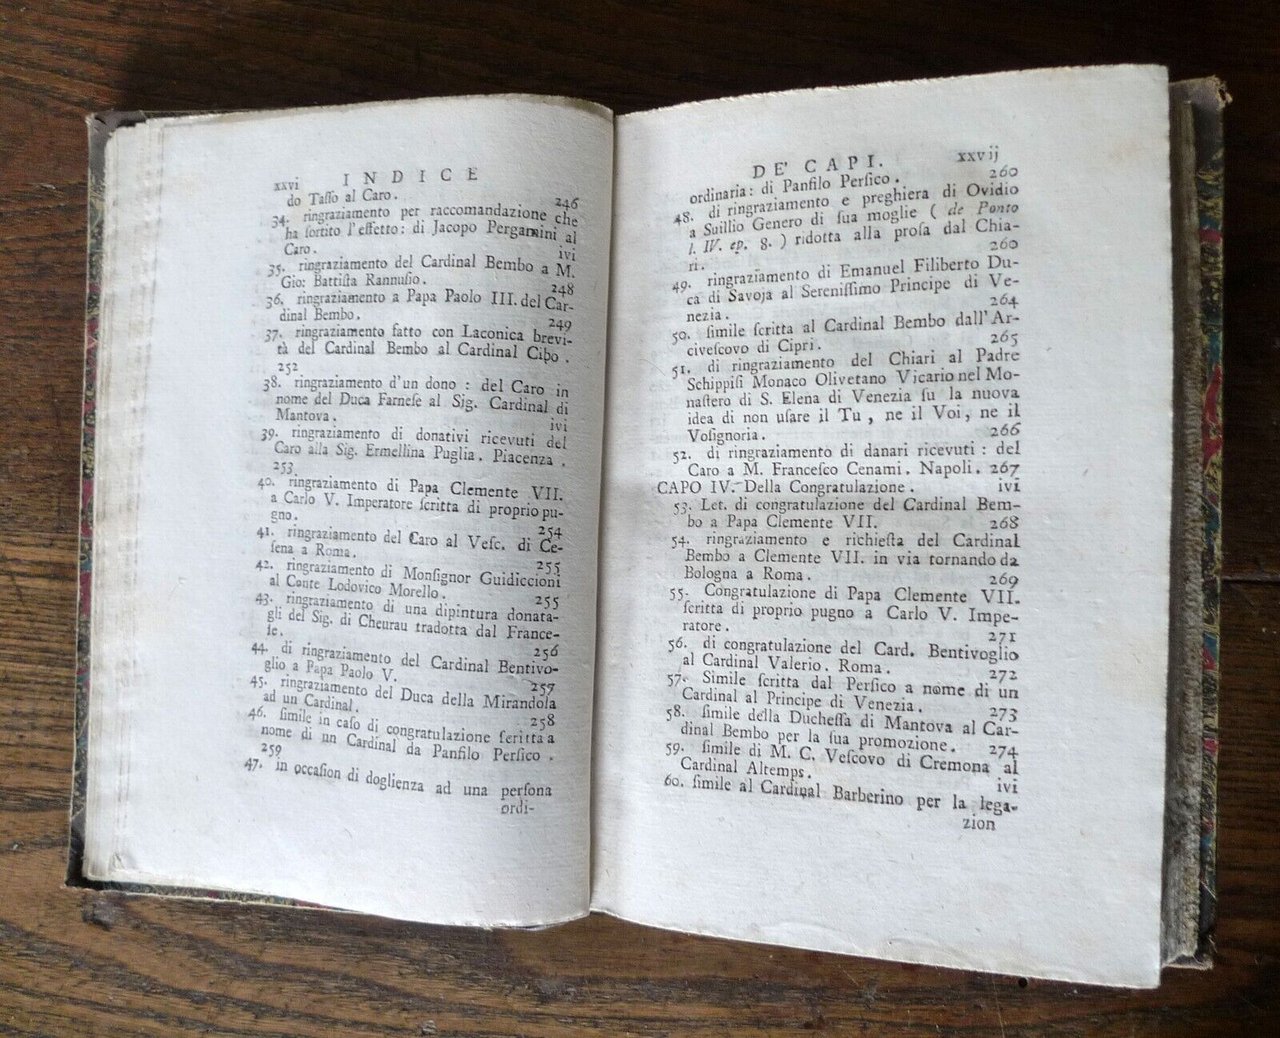 xxvi INDICE
do Taſſo al Caro. 246
34. ringraziamento per raccomandazione che
ha ſortito l'effetto: di Jacopo Pergamini al
Caro. ivi
35. ringraziamento del Cardinal Bembo a M.
Gio: Battiſta Rannuſio. 248
36. ringraziamento a Papa Paolo III. del Car-
dinal Bembo. 249
37. ringraziamento fatto con Laconica brevi-
tà del Cardinal Bembo al Cardinal Cibo.
252
38. ringraziamento d'un dono: del Caro in
nome del Duca Farneſe al Sig. Cardinal di
Mantova. ivi
39. ringraziamento di donativi ricevuti del
Caro alla Sig. Ermellina Puglia. Piacenza.
253
40. ringraziamento di Papa Clemente VII.
a Carlo V. Imperatore ſcritta di proprio pu-
gno. 254
41. ringraziamento del Caro al Veſc. di Ce-
ſena a Roma. 255
42. ringraziamento di Monſignor Guidiccioni
al Conte Lodovico Morello. 255
43. ringraziamento di una dipintura donata-
gli del Sig. di Cheurau tradotta dal France-
ſe. 256
44. di ringraziamento del Cardinal Bentivo-
glio a Papa Paolo V. 257
45. ringraziamento del Duca della Mirandola
ad un Cardinal. 258
46. ſimile in caſo di congratulazione ſcritta a
nome di un Cardinal da Panfilo Perſico.
259
47. in occaſion di doglienza ad una perſona
ordi-
DE' CAPI. xxvij
ordinaria: di Panfilo Perſico. 260
48. di ringraziamento e preghiera di Ovidio
a Suillio Genero di ſua moglie ( de Ponto
l. IV. ep. 8. ) ridotta alla proſa dal Chia-
ri. 260
49. ringraziamento di Emanuel Filiberto Du-
ca di Savoja al Sereniſſimo Principe di Ve-
nezia. 264
50. ſimile ſcritta al Cardinal Bembo dall'Ar-
civeſcovo di Cipri. 265
51. di ringraziamento del Chiari al Padre
Schippiſi Monaco Olivetano Vicario nel Mo-
naſtero di S. Elena di Venezia ſu la nuova
idea di non uſare il Tu, ne il Voi, ne il
Voſignoria. 266
52. di ringraziamento di danari ricevuti: del
Caro a M. Franceſco Cenami. Napoli. 267
CAPO IV. Della Congratulazione. ivi
53. Let. di congratulazione del Cardinal Bem-
bo a Papa Clemente VII. 268
54. ringraziamento e richieſta del Cardinal
Bembo a Clemente VII. in via tornando da
Bologna a Roma. 269
55. Congratulazione di Papa Clemente VII.
ſcritta di proprio pugno a Carlo V. Impe-
ratore. 271
56. di congratulazione del Card. Bentivoglio
al Cardinal Valerio. Roma. 272
57. Simile ſcritta dal Perſico a nome di un
Cardinal al Principe di Venezia. 273
58. ſimile della Ducheſſa di Mantova al Car-
dinal Bembo per la ſua promozione. 274
59. ſimile di M. C. Veſcovo di Cremona al
Cardinal Altemps. ivi
60. ſimile al Cardinal Barberino per la lega-
zion